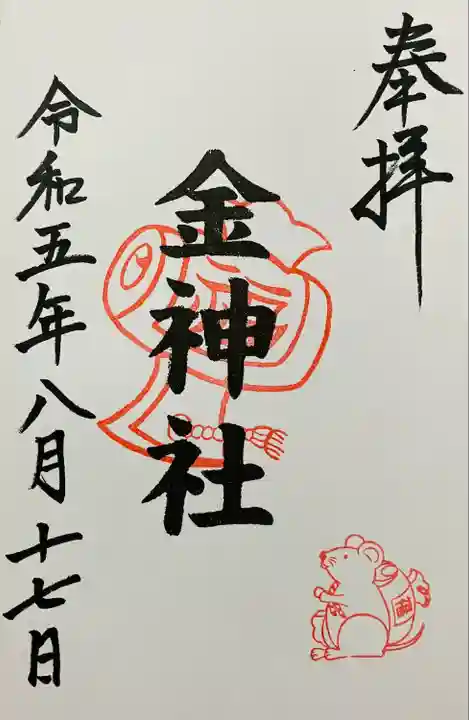 奉拝
金神社
令和五年八月十七日
福